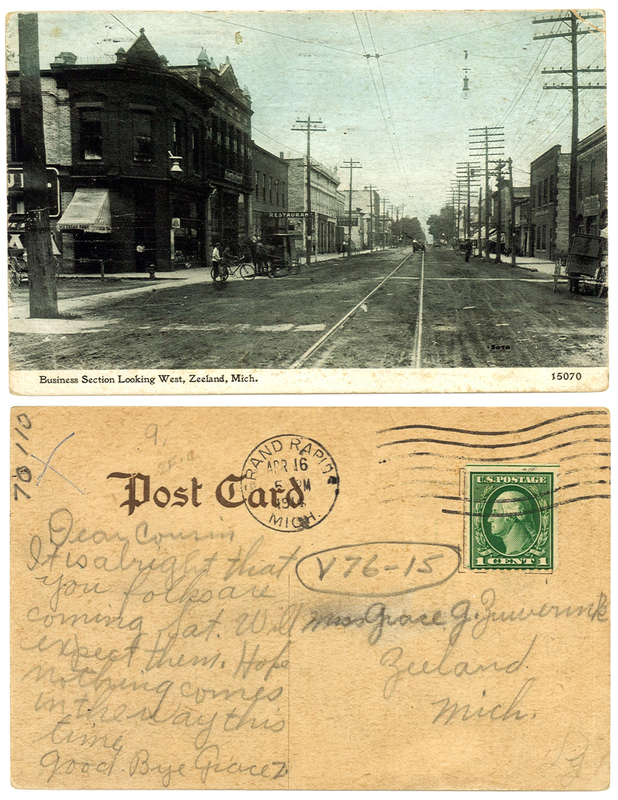 RESTAURANT
15070
Business Section Looking West, Zeeland, Mich.
15070
70 110
9.
Post Card
GRAND RAPIDS
APR 16
5 PM
MICH.
U.S. POSTAGE
1 CENT 1
Dear Cousin
It is alright that
you folks are
coming Sat. Will
expect them. Hope
nothing comes
in the way this
time
Good Bye Grace Z
V76-15
Miss Grace J. Zuwerink
Zeeland
Mich.